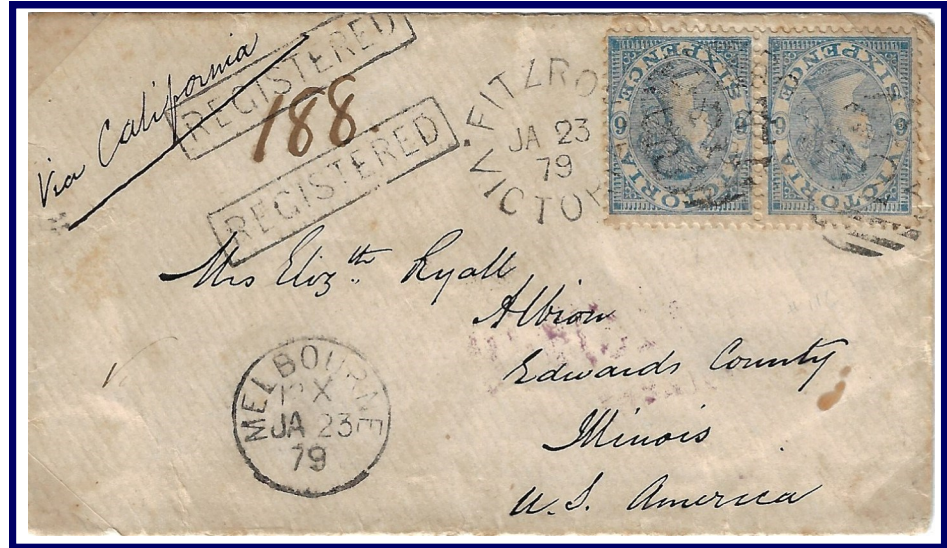 Via California
REGISTERED
188.
REGISTERED
FITZRO
JA 23
79
VICTO
SIXPENCE
6 6
VICTORIA
SIXPENCE
6 6
VICTORIA
Mrs Eliz.th Ryall
Albion
Edwards County
Illinois
U.S. America
MELBOURNE
X
JA 23
79